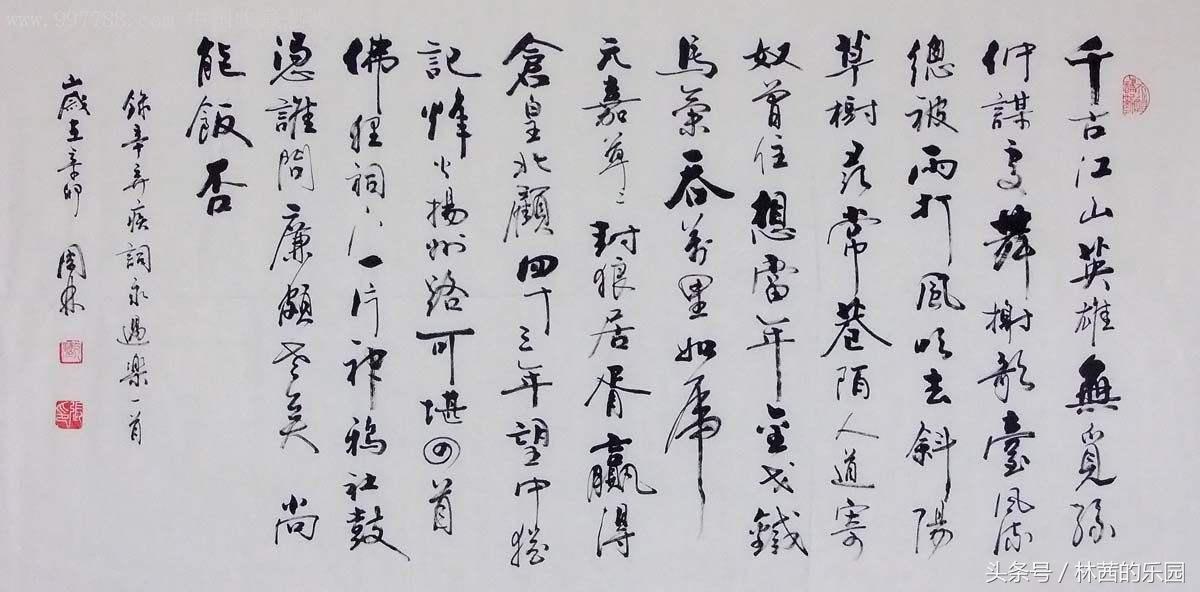 千古江山英雄無覓孫
仲謀處舞榭歌臺風流
總被雨打風吹去斜陽
草樹尋常巷陌人道寄
奴曾住想當年金戈鐵
馬氣吞萬里如虎
元嘉草〻封狼居胥贏得
倉皇北顧四十三年望中猶
記烽火揚州路可堪回首
佛狸祠下一片神鴉社鼓
憑誰問廉頗老矣尚
能飯否
錄辛弃疾詞永遇樂一首
歲在辛卯 周林
www.997788.com
头条号 / 林茜的乐园